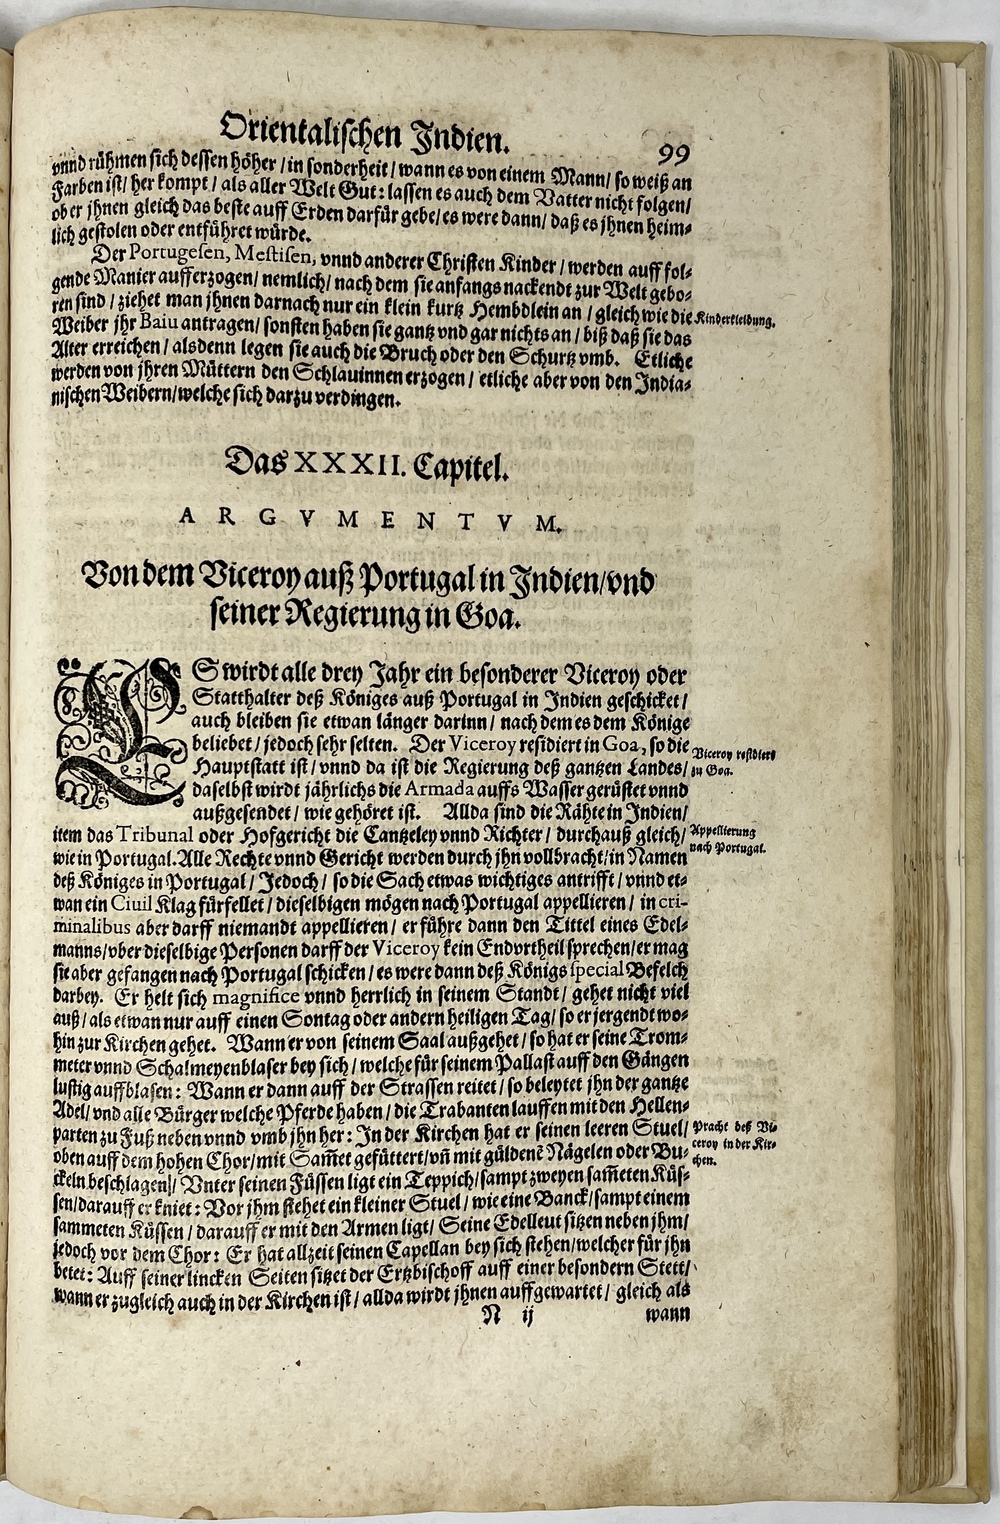 Orientalischen Indien.
99
vnnd rühmen sich dessen höher / in sonderheit / wann es von einem Mann / so weiß an
Farben ist / her kompt / als aller Welt Gut : lassen es auch dem Vatter nicht folgen /
ob er jhnen gleich das beste auff Erden darfür gebe / es were dann / daß es jhnen heim⸗
lich gestolen oder entführet würde.
Der Portugesen, Mestisen, vnnd anderer Christen Kinder / werden auff fol⸗
gende Manier aufferzogen / nemlich / nach dem sie anfangs nackendt zur Welt gebo⸗
ren sind / ziehet man jhnen darnach nur ein klein kurtz Hembdlein an / gleich wie die
Kinderkleidung.
Weiber jhr Baiu antragen / sonsten haben sie gantz vnd gar nichts an / biß daß sie das
Alter erreichen / alsdenn legen sie auch die Bruch oder den Schurtz vmb. Etliche
werden von jhren Müttern den Schlauinnen erzogen / etliche aber von den India⸗
nischen Weibern / welche sich darzu verdingen.
Das XXXII. Capitel.
ARGVMENTVM.
Von dem Viceroy auß Portugal in Indien / vnd
seiner Regierung in Goa.
ES wirdt alle drey Jahr ein besonderer Viceroy oder
Statthalter deß Königes auß Portugal in Indien geschicket /
auch bleiben sie etwan länger darinn / nach dem es dem Könige
beliebet / jedoch sehr selten. Der Viceroy residiert in Goa, so die
Viceroy residiert
Hauptstatt ist / vnnd da ist die Regierung deß gantzen Landes /
zu Goa.
daselbst wirdt jährlichs die Armada auffs Wasser gerüstet vnnd
außgesendet / wie gehöret ist. Allda sind die Rähte in Indien /
item das Tribunal oder Hofgericht die Cantzeley vnnd Richter / durchauß gleich /
Appellierung
nach Portugal.
wie in Portugal. Alle Rechte vnnd Gericht werden durch jhn vollbracht / in Namen
deß Königes in Portugal / Jedoch / so die Sach etwas wichtiges antrifft / vnnd et⸗
wan ein Ciuil Klag fürfellet / dieselbigen mögen nach Portugal appellieren / in cri-
minalibus aber darff niemandt appellieren / er führe dann den Tittel eines Edel⸗
manns / vber dieselbige Personen darff der Viceroy kein Endvrtheil sprechen / er mag
sie aber gefangen nach Portugal schicken / es were dann deß Königs special Befelch
darbey. Er helt sich magnifice vnnd herrlich in seinem Standt / gehet nicht viel
auß / als etwan nur auff einen Sontag oder andern heiligen Tag / so er jergendt wo⸗
hin zur Kirchen gehet. Wann er von seinem Saal außgehet / so hat er seine Trom⸗
meter vnnd Schalmeyenblaser bey sich / welche für seinem Pallast auff den Gängen
lustig auffblasen : Wann er dann auff der Strassen reitet / so beleytet jhn der gantze
Adel / vnd alle Bürger welche Pferde haben / die Trabanten lauffen mit den Hellen⸗
parten zu Fuß neben vnnd vmb jhn her : In der Kirchen hat er seinen leeren Stuel /
Pracht deß Vi⸗
ceroy in der Kir⸗
chen.
oben auff dem hohen Chor / mit Sam̃et gefüttert / vn̄ mit güldenē Nägelen oder Bu⸗
ckeln beschlagen / Vnter seinen Füssen ligt ein Teppich / sampt zweyen sam̃eten Küs⸗
sen / darauff er kniet : Vor jhm stehet ein kleiner Stuel / wie eine Banck / sampt einem
sammeten Küssen / darauff er mit den Armen ligt / Seine Edelleut sitzen neben jhm /
jedoch vor dem Chor : Er hat allzeit seinen Capellan bey sich stehen / welcher für jhn
betet : Auff seiner lincken Seiten sitzet der Ertzbischoff auff einer besondern Stett /
wann er zugleich auch in der Kirchen ist / allda wirdt jhnen auffgewartet / gleich als
N ij
wann